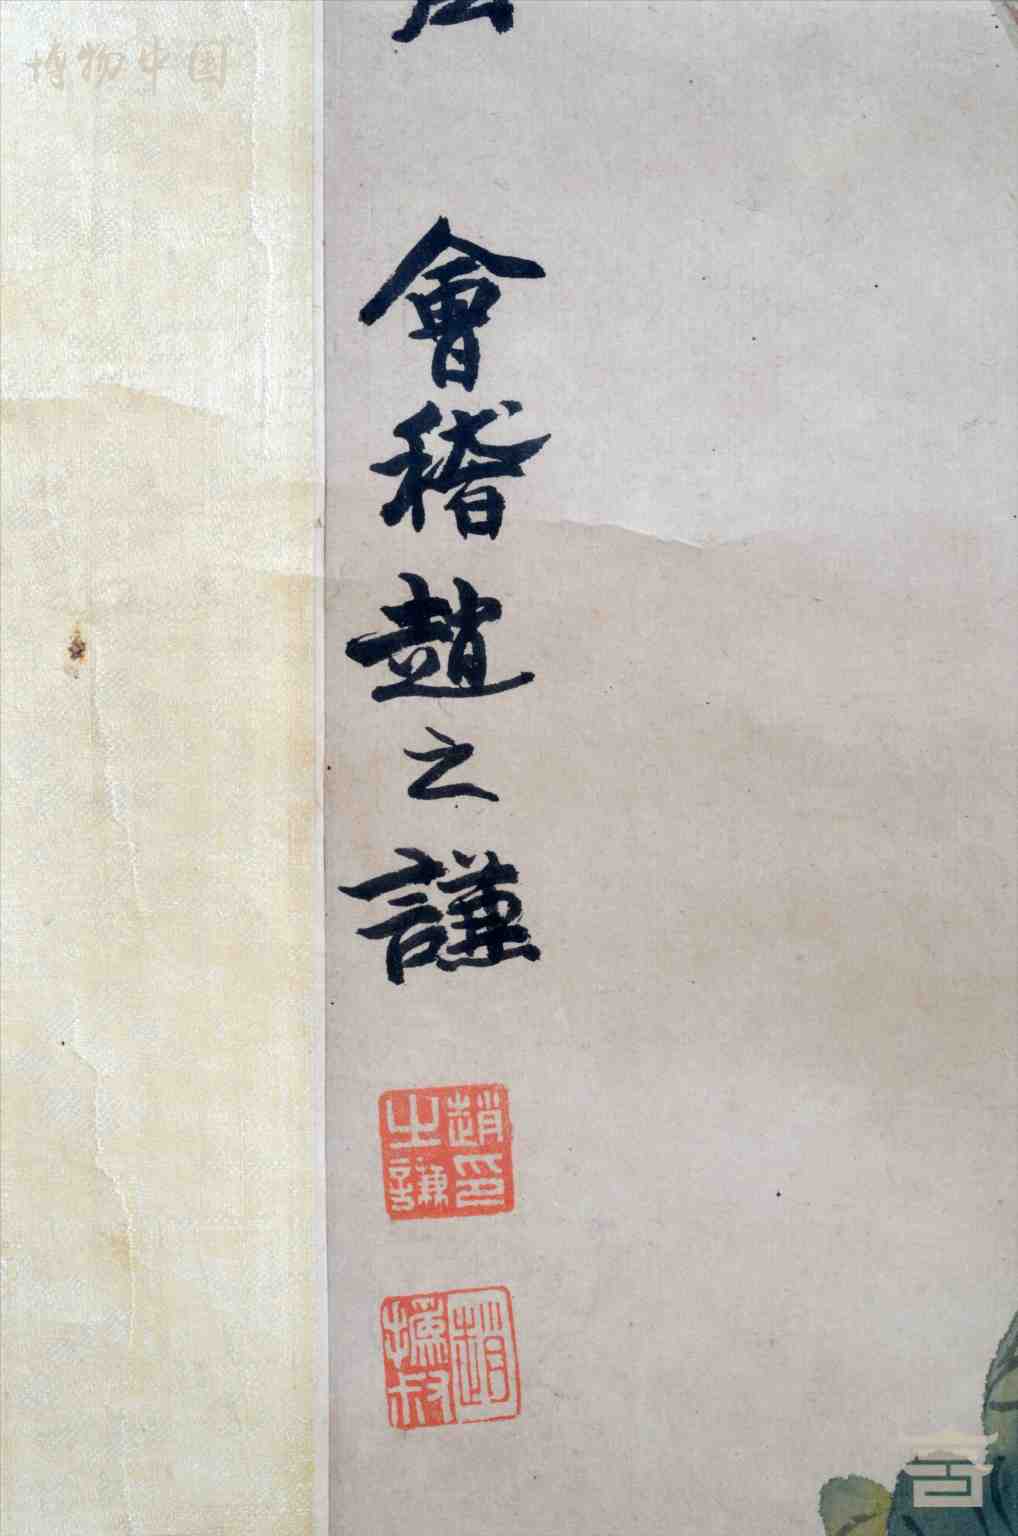 博物中国
會稽趙之謙
趙印
之謙
趙
撝叔